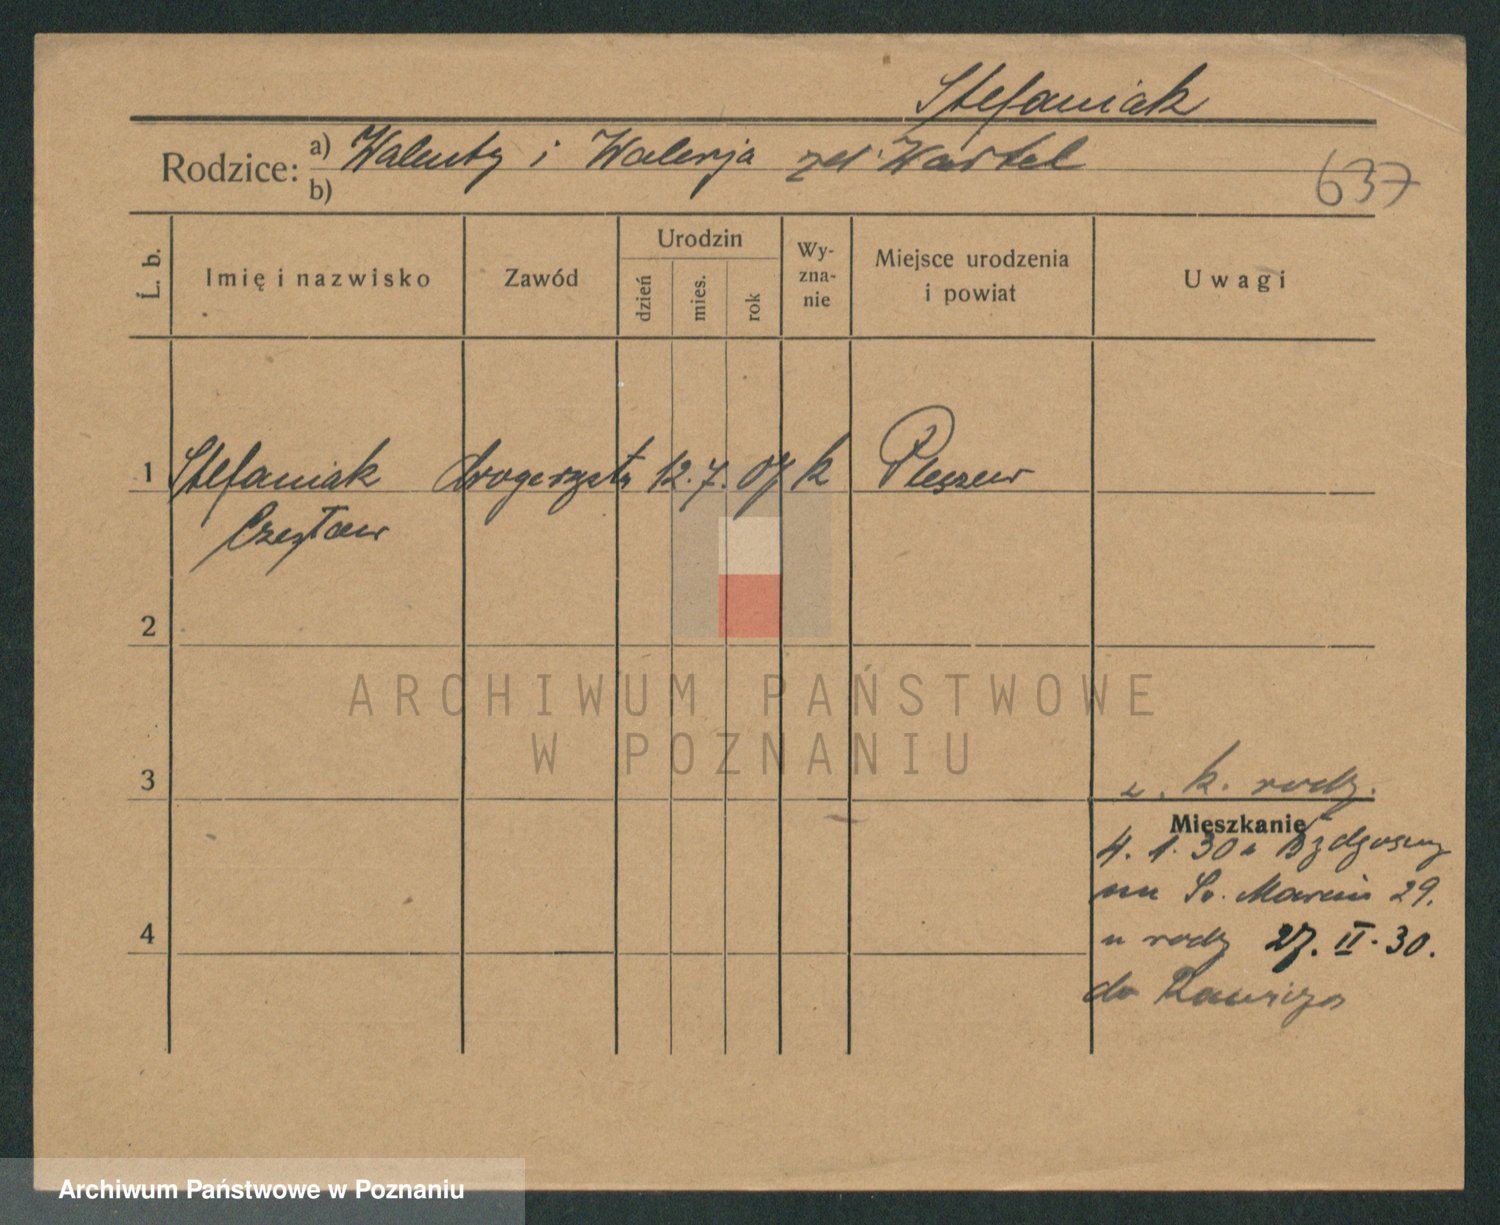 Stefaniak
Rodzice: a) Walenty i Walerja zd. Wartel
b)
637
L. b.
Imię i nazwisko
Zawód
Urodzin
dzień
mies.
rok
Wy-
zna-
nie
Miejsce urodzenia
i powiat
Uwagi
1 Stefaniak drogerzysta 12. 7. 07 k Pleszew
Czesław
2
ARCHIWUM PAŃSTWOWE
W POZNANIU
3
k. rodz.
Mieszkanie
4. 1. 30 z Bydgoszcz
na Św. Marcin 29.
u rodz 27. II. 30.
4
do Rawicza
Archiwum Państwowe w Poznaniu